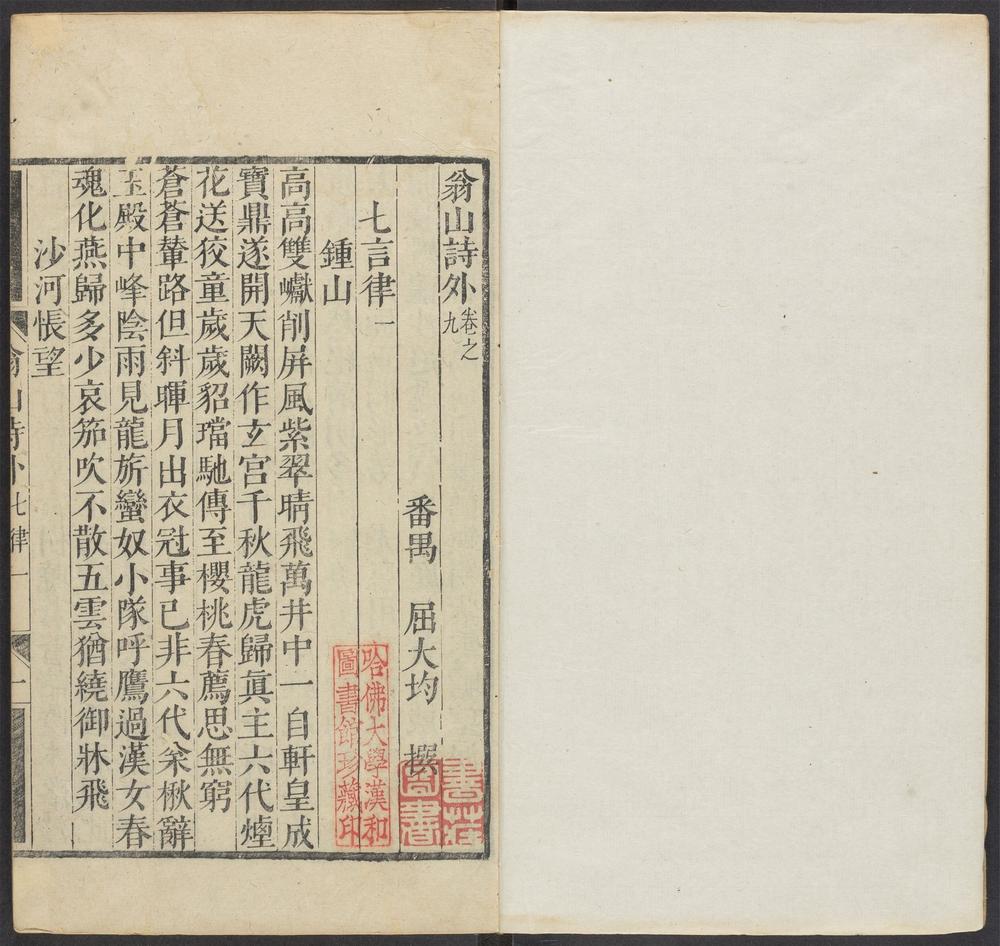 翁山詩外卷之九
番禺　屈大均　撰
七言律一
鍾山
高高雙巘削屏風紫翠晴飛萬井中一自軒皇成
寶鼎遂開天闕作玄宮千秋龍虎歸眞主六代煙
花送狡童歲歲貂璫馳傳至櫻桃春薦思無窮
蒼蒼輦路但斜暉月出衣冠事已非六代松楸辭
玉殿中峰陰雨見龍旂蠻奴小隊呼鷹過漢女春
魂化燕歸多少哀笳吹不散五雲猶繞御牀飛
沙河悵望
翁山詩外七律一
一
哈佛大學漢和
圖書館珍藏印